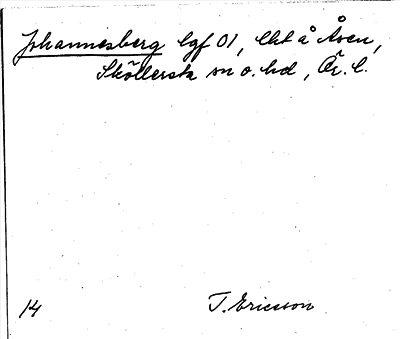 Johannesberg lgf 01, lht å Åsen,
Sköllersta sn o. hd, Ör. l.
14 T. Ericsson